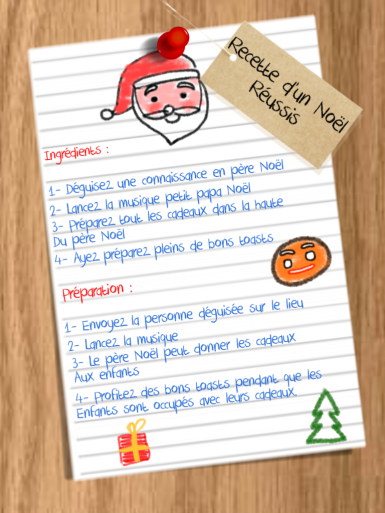 Recette d'un Noël
Réussis
Ingrédients :
1- Déguisez une connaissance en père Noël
2- Lancez la musique petit papa Noël
3- Préparez tout les cadeaux dans la haute
Du père Noël
4- Ayez préparez pleins de bons toasts
Préparation :
1- Envoyez la personne déguisée sur le lieu
2- Lancez la musique
3- Le père Noël peut donner les cadeaux
Aux enfants
4- Profitez des bons toasts pendant que les
Enfants sont occupés avec leurs cadeaux.